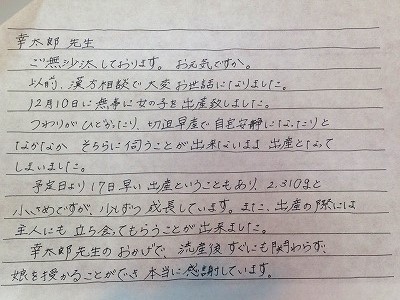 幸太郎 先生
ご無沙汰しております。お元気ですか。
以前、漢方相談で大変お世話になりました。
12月10日に無事に女の子を出産致しました。
つわりがひどかったり、切迫早産で自宅安静になったりと
なかなか そちらに伺うことが出来ないまま 出産となって
しまいました。
予定日より17日早い出産ということもあり、2,310gと
小さめですが、少しずつ成長しています。また、出産の際には
主人にも立ち会ってもらうことが出来ました。
幸太郎先生のおかげで、流産後すぐにも関わらず、
娘を授かることができ本当に感謝しています。